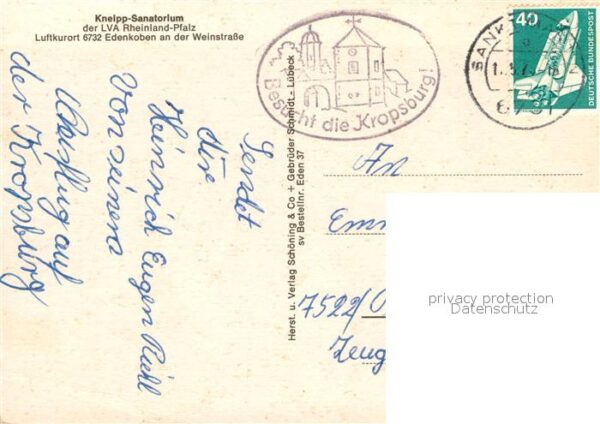 Kneipp-Sanatorium
der LVA Rheinland-Pfalz
Luftkurort 6732 Edenkoben an der Weinstraße
Besucht die Kropsburg!
40
DEUTSCHE BUNDESPOST
SANKT
Sendet
dir
Heinrich Eugen
Von seinem
Ausflug auf
der Kropsburg
Herst. u. Verlag Schöning & Co + Gebrüder Schmidt - Lübeck
sv Bestellnr. Eden 37
An
7522
privacy protection
Datenschutz